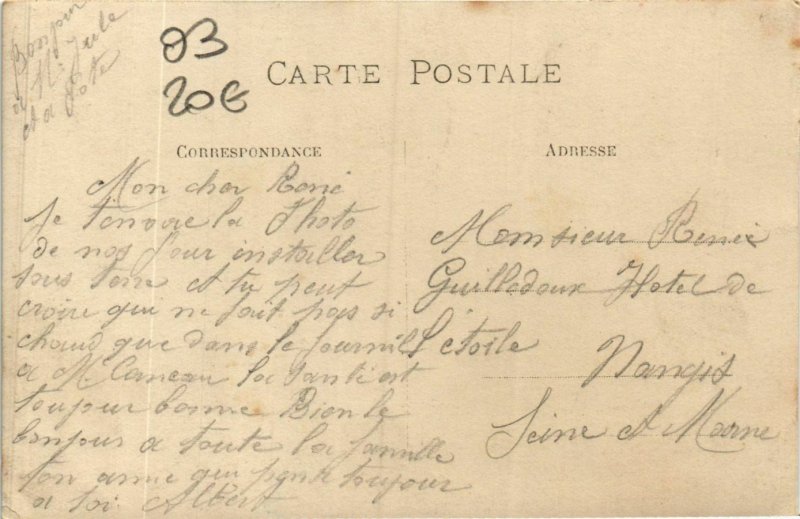 Bonjour
a Mr Jule
et a Pote
03
20€
CARTE POSTALE
CORRESPONDANCE
ADRESSE
Mon cher René
Je t'envoie la Photo
de nos four installer
sous terre et tu peut
croire qui ne fait pas si
chaud que dans le fournil
a M. la santé est
toujour bonne Bien le
bonjour a toute la famille
ton amie qui pense toujour
a toi Albert
Monsieur Renée
Guilledoux Hotel de
L'étoile Nangis
Seine et Marne